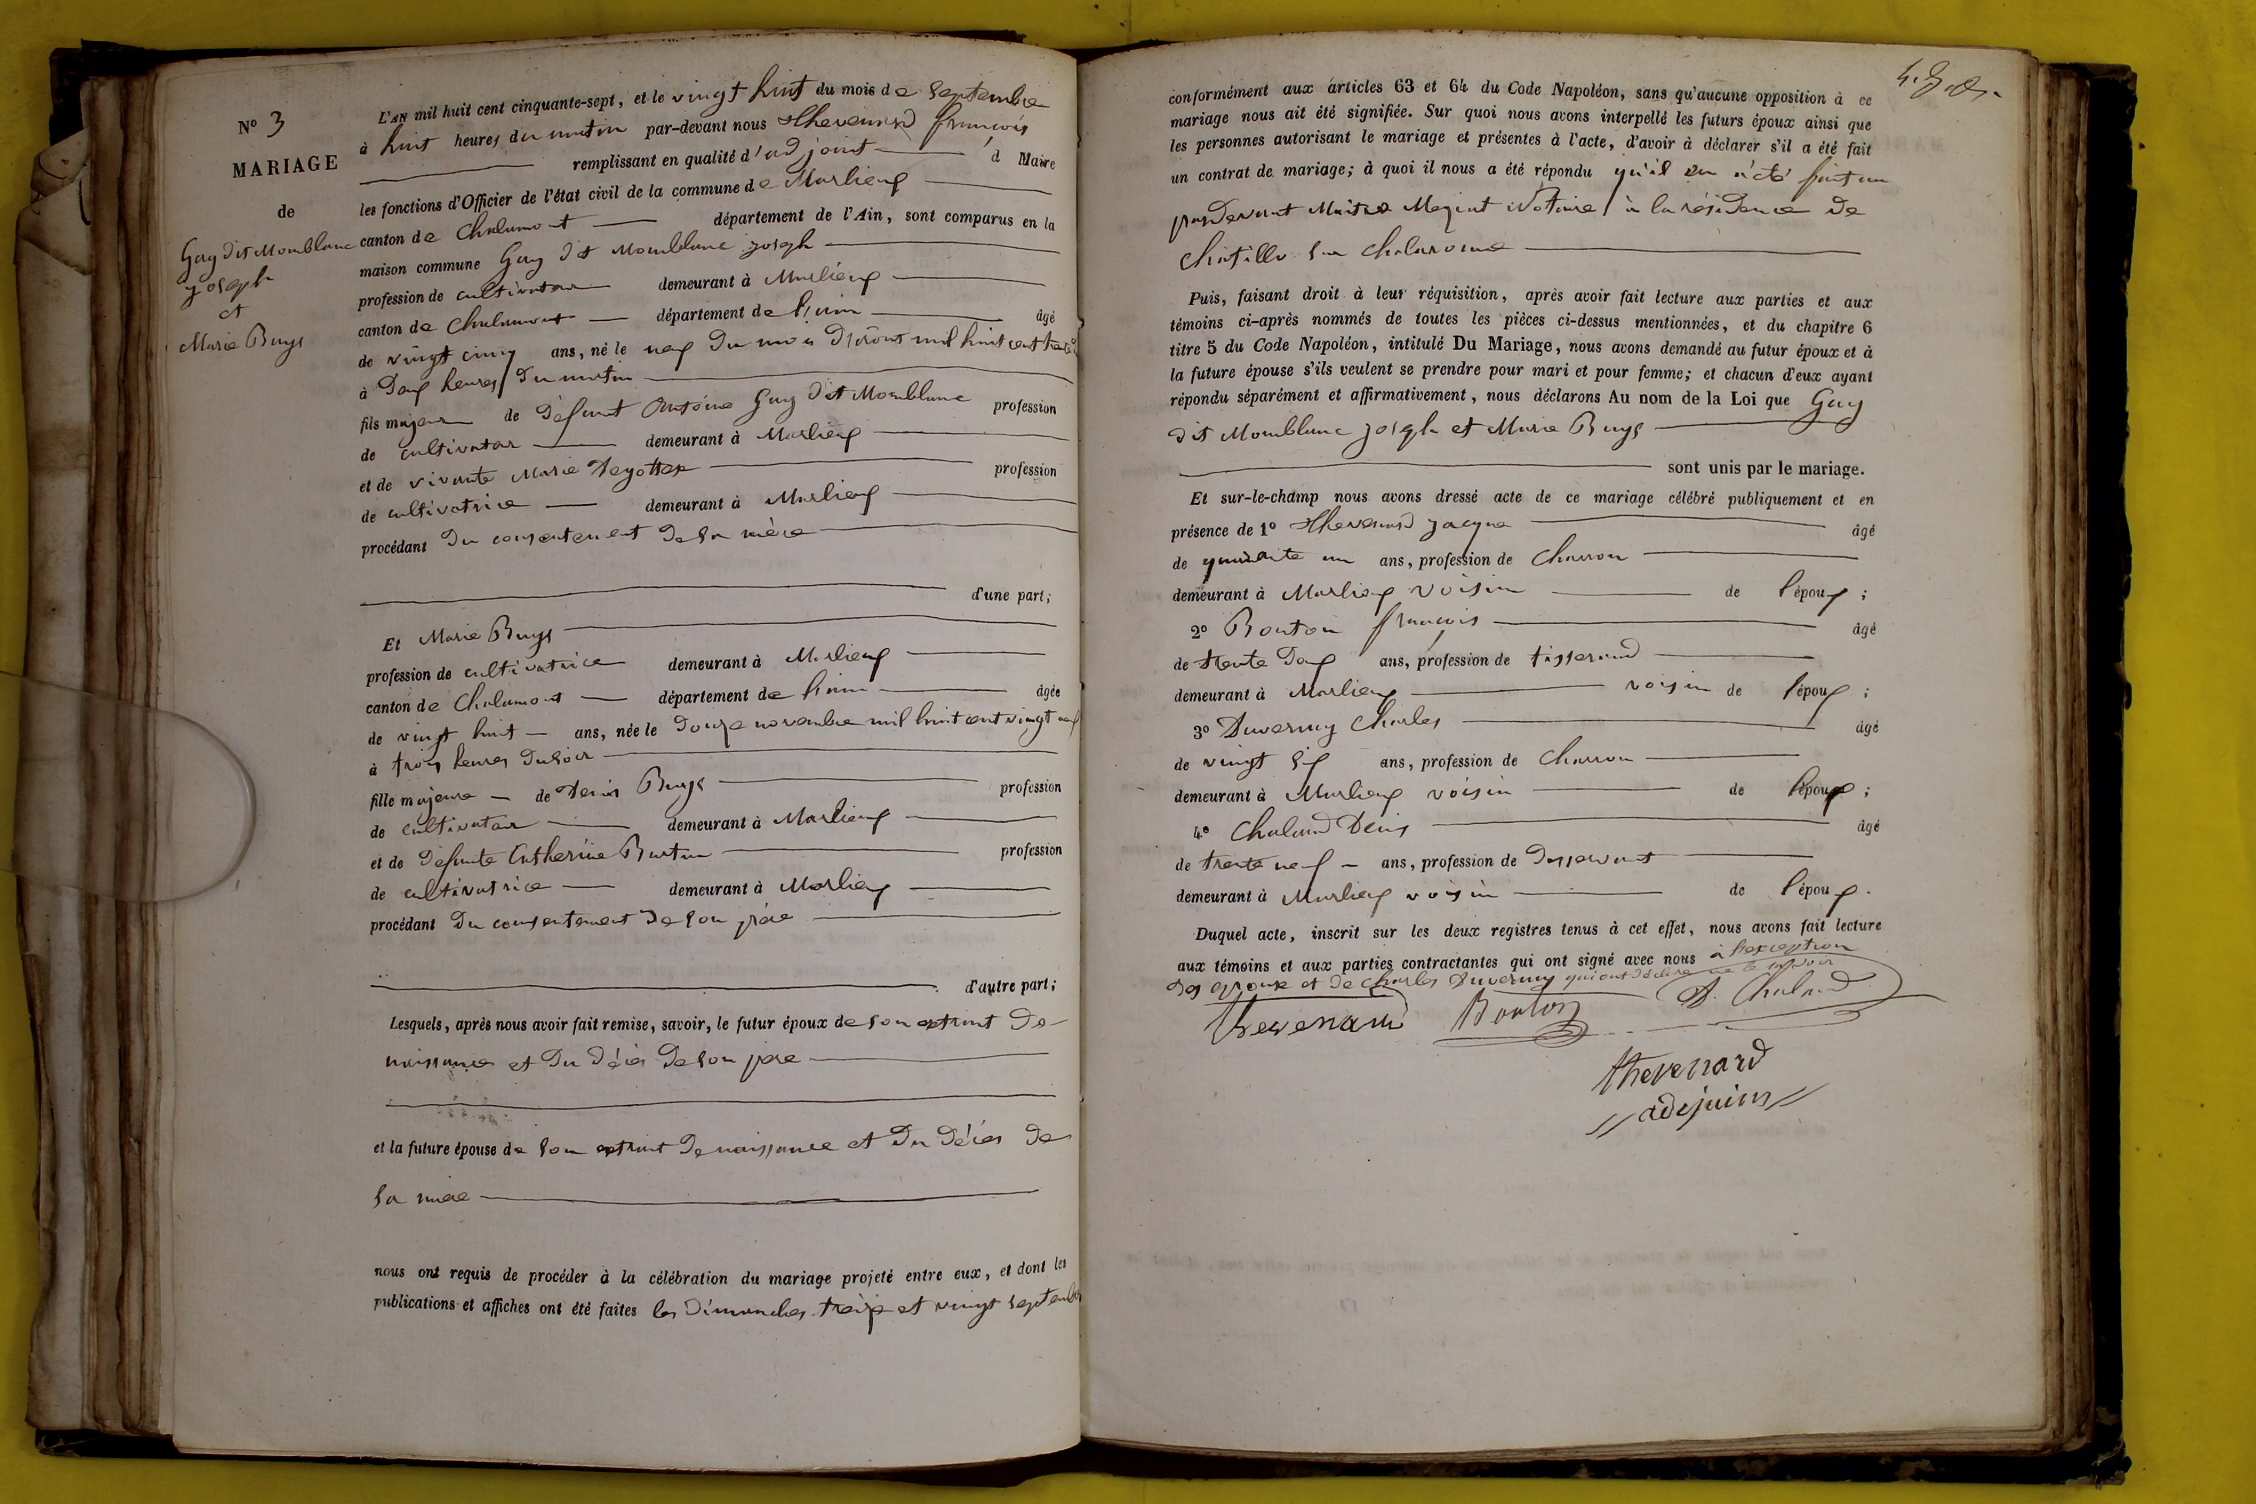 N° 3
MARIAGE
de
Guy dit Momblanc
joseph
et
Marie Buys
L'AN mil huit cent cinquante-sept, et le vingt huit du mois de Septembre
à huit heures du matin par-devant nous thevenard françois
remplissant en qualité d'adjoint d Maire
les fonctions d'Officier de l'état civil de la commune de Marlieux
canton de Chalamont département de l'Ain, sont comparus en la
maison commune Guy dit Momblanc joseph
profession de cultivateur demeurant à Marlieux
canton de Chalamont département de l'ain âgé
de vingt cinq ans, né le neuf du mois D'aôut mil huit cent trente
à Deux heures du matin
fils majeur de Défunt Antoine Guy dit Momblanc profession
de cultivateur demeurant à Marlieux
et de vivante Marie profession
de cultivatrice demeurant à Marlieux
procédant Du consentement De sa mère
d'une part;
Et Marie Buys
profession de cultivatrice demeurant à Marlieux
canton de Chalamont département de l'ain âgée
de vingt huit ans, née le Douze novembre mil huit cent vingt neuf
à trois heures Du soir
fille majeure de Denis Buys profession
de cultivateur demeurant à Marlieux
et de Défunte Catherine Burtin profession
de cultivatrice demeurant à Marlieux
procédant Du consentement De son père
d'autre part;
Lesquels, après nous avoir fait remise, savoir, le futur époux de son extrait De
naissance et Du Décès De son père
et la future épouse de son extrait De naissance et Du Décès De
sa mère
nous ont requis de procéder à la célébration du mariage projeté entre eux, et dont les
publications et affiches ont été faites les Dimanches treize et vingt septembre
conformément aux articles 63 et 64 du Code Napoléon, sans qu'aucune opposition à ce
mariage nous ait été signifiée. Sur quoi nous avons interpellé les futurs époux ainsi que
les personnes autorisant le mariage et présentes à l'acte, d'avoir à déclarer s'il a été fait
un contrat de mariage; à quoi il nous a été répondu qu'il en a été fait un
pardevant Maitre Notaire à la résidence de
Chatillon sur Chalaronne
Puis, faisant droit à leur réquisition, après avoir fait lecture aux parties et aux
témoins ci-après nommés de toutes les pièces ci-dessus mentionnées, et du chapitre 6
titre 5 du Code Napoléon, intitulé Du Mariage, nous avons demandé au futur époux et à
la future épouse s'ils veulent se prendre pour mari et pour femme; et chacun d'eux ayant
répondu séparément et affirmativement, nous déclarons Au nom de la Loi que Guy
dit Momblanc joseph et Marie Buys
sont unis par le mariage.
Et sur-le-champ nous avons dressé acte de ce mariage célébré publiquement et en
présence de 1° thevenard jacque âgé
de quarante un ans, profession de Charron
demeurant à Marlieux voisin de l'époux;
2° Bouton françois âgé
de trente Deux ans, profession de tisserand
demeurant à Marlieux voisin de l'époux;
3° Duvernay Charles âgé
de vingt six ans, profession de Charron
demeurant à Marlieux voisin de l'époux;
4° Chaland Denis âgé
de trente neuf ans, profession de Desservant
demeurant à Marlieux voisin de l'époux.
Duquel acte, inscrit sur les deux registres tenus à cet effet, nous avons fait lecture
aux témoins et aux parties contractantes qui ont signé avec nous à l'exception
des epoux et de Charles Duvernay qui ont déclaré ne le savoir
thevenard Bouton D. Chaland
thevenard
adejuins